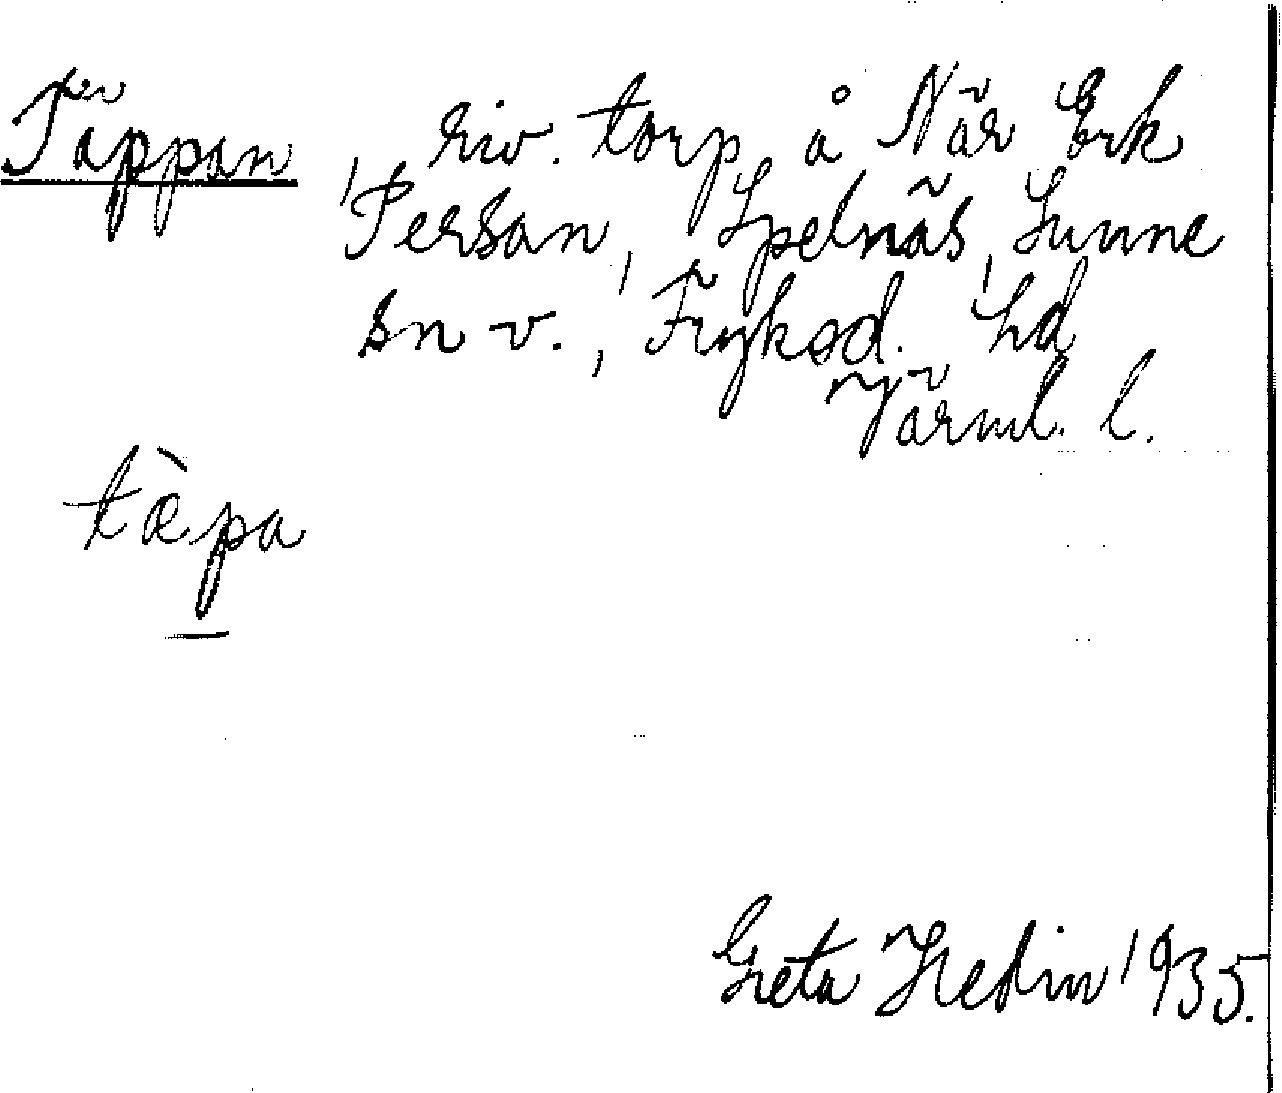 Täppan, riv. torp å När Erk
Persan, Spelnäs, Sunne
sn v., Fryksd. hd
Värml. l.
tæ̀pa
Greta Hedin 1935.